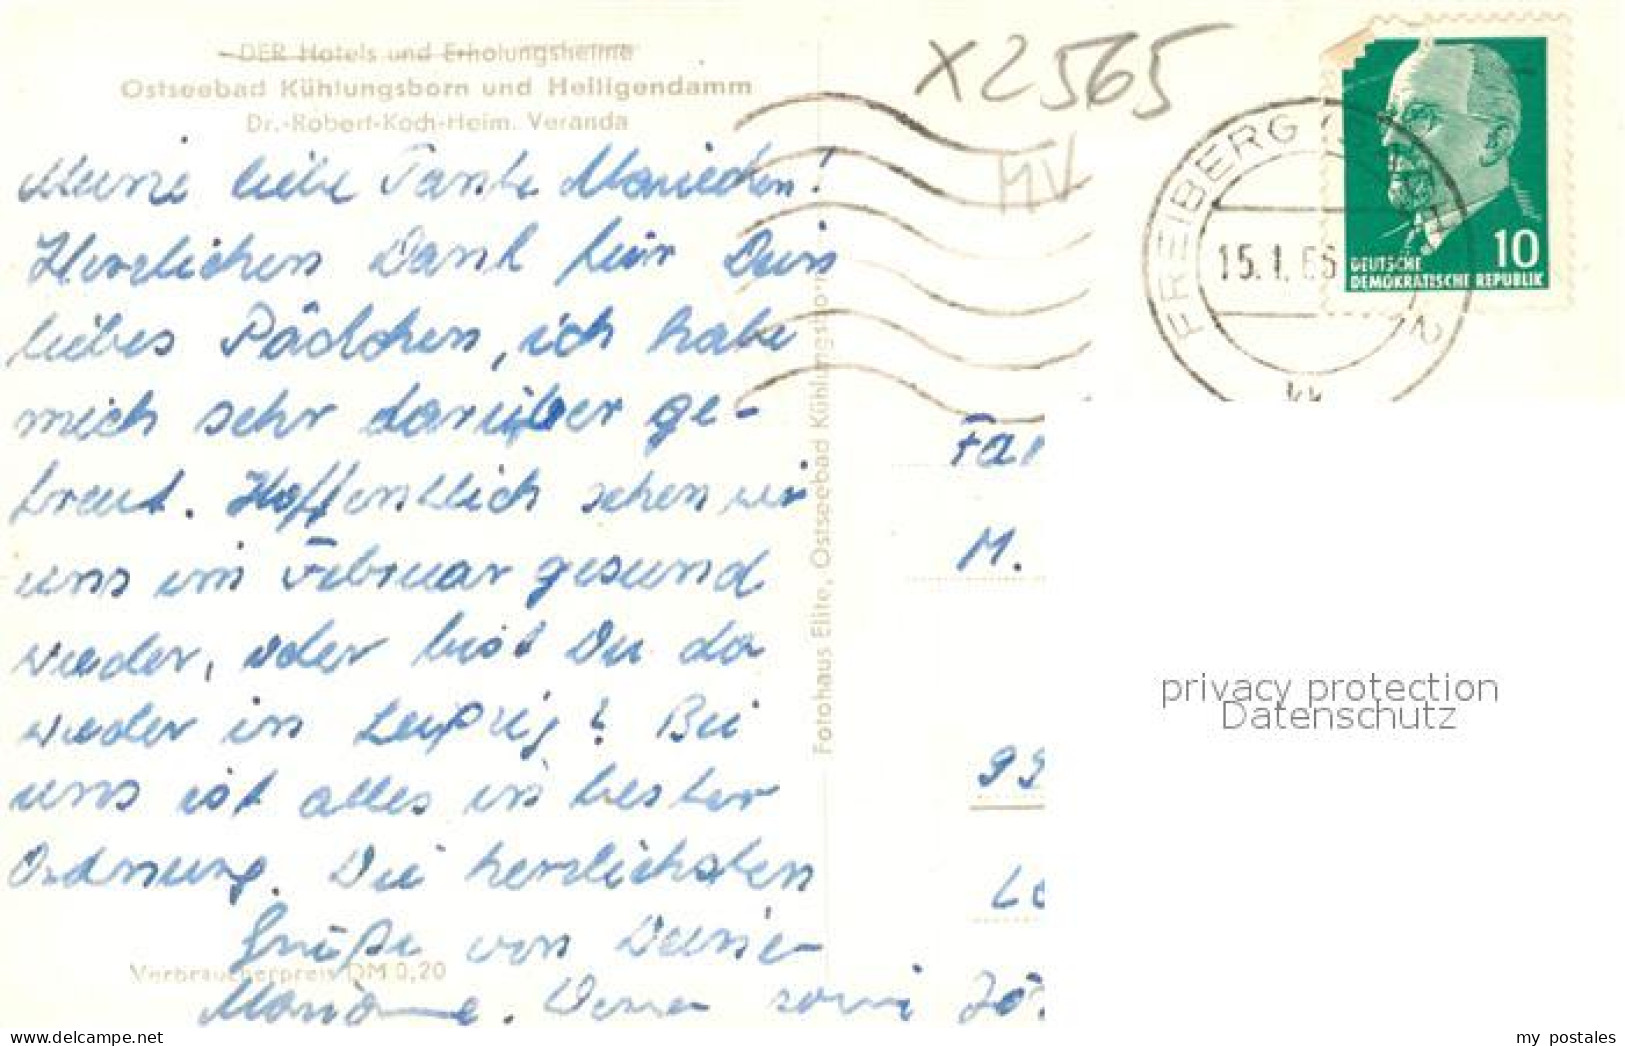 DER Hotels und Erholungsheime
Ostseebad Kühlungsborn und Heiligendamm
Dr.-Robert-Koch-Heim. Veranda
X2565
MV
FREIBERG
15.1.66
10
DEUTSCHE
DEMOKRATISCHE REPUBLIK
Meine liebe Tante Mariechen!
Herzlichen Dank für Dein
liebes Päckchen, ich habe
mich sehr darüber ge-
freut. Hoffentlich sehen wir
uns im Februar gesund
wieder, oder bist Du da
wieder in Leipzig? Bei
uns ist alles in bester
Ordnung. Die herzlichsten
Grüße von Deine
Marianne. Werner sowie
Verbraucherpreis DM 0,20
Fotohaus Elite, Ostseebad Kühlungsborn
M.
privacy protection
Datenschutz
www.delcampe.net
my postales